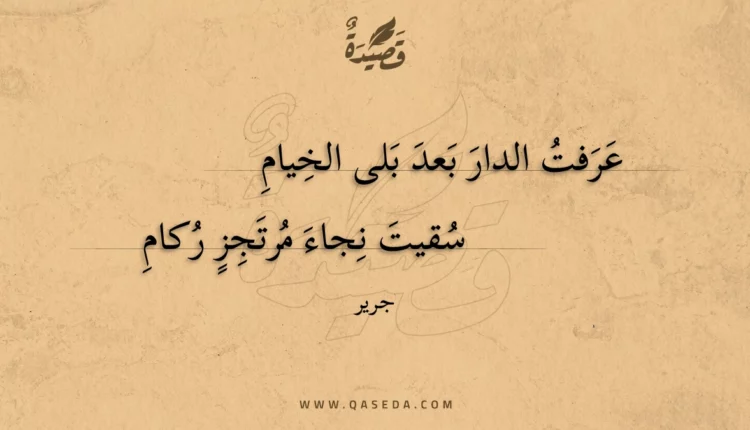 قَصِيْدَةٌ
عَرَفتُ الدارَ بَعدَ بَلى الخِيامِ
سُقيتَ نِجاءَ مُرتَجِزٍ رُكامِ
جرير
WWW.QASEDA.COM